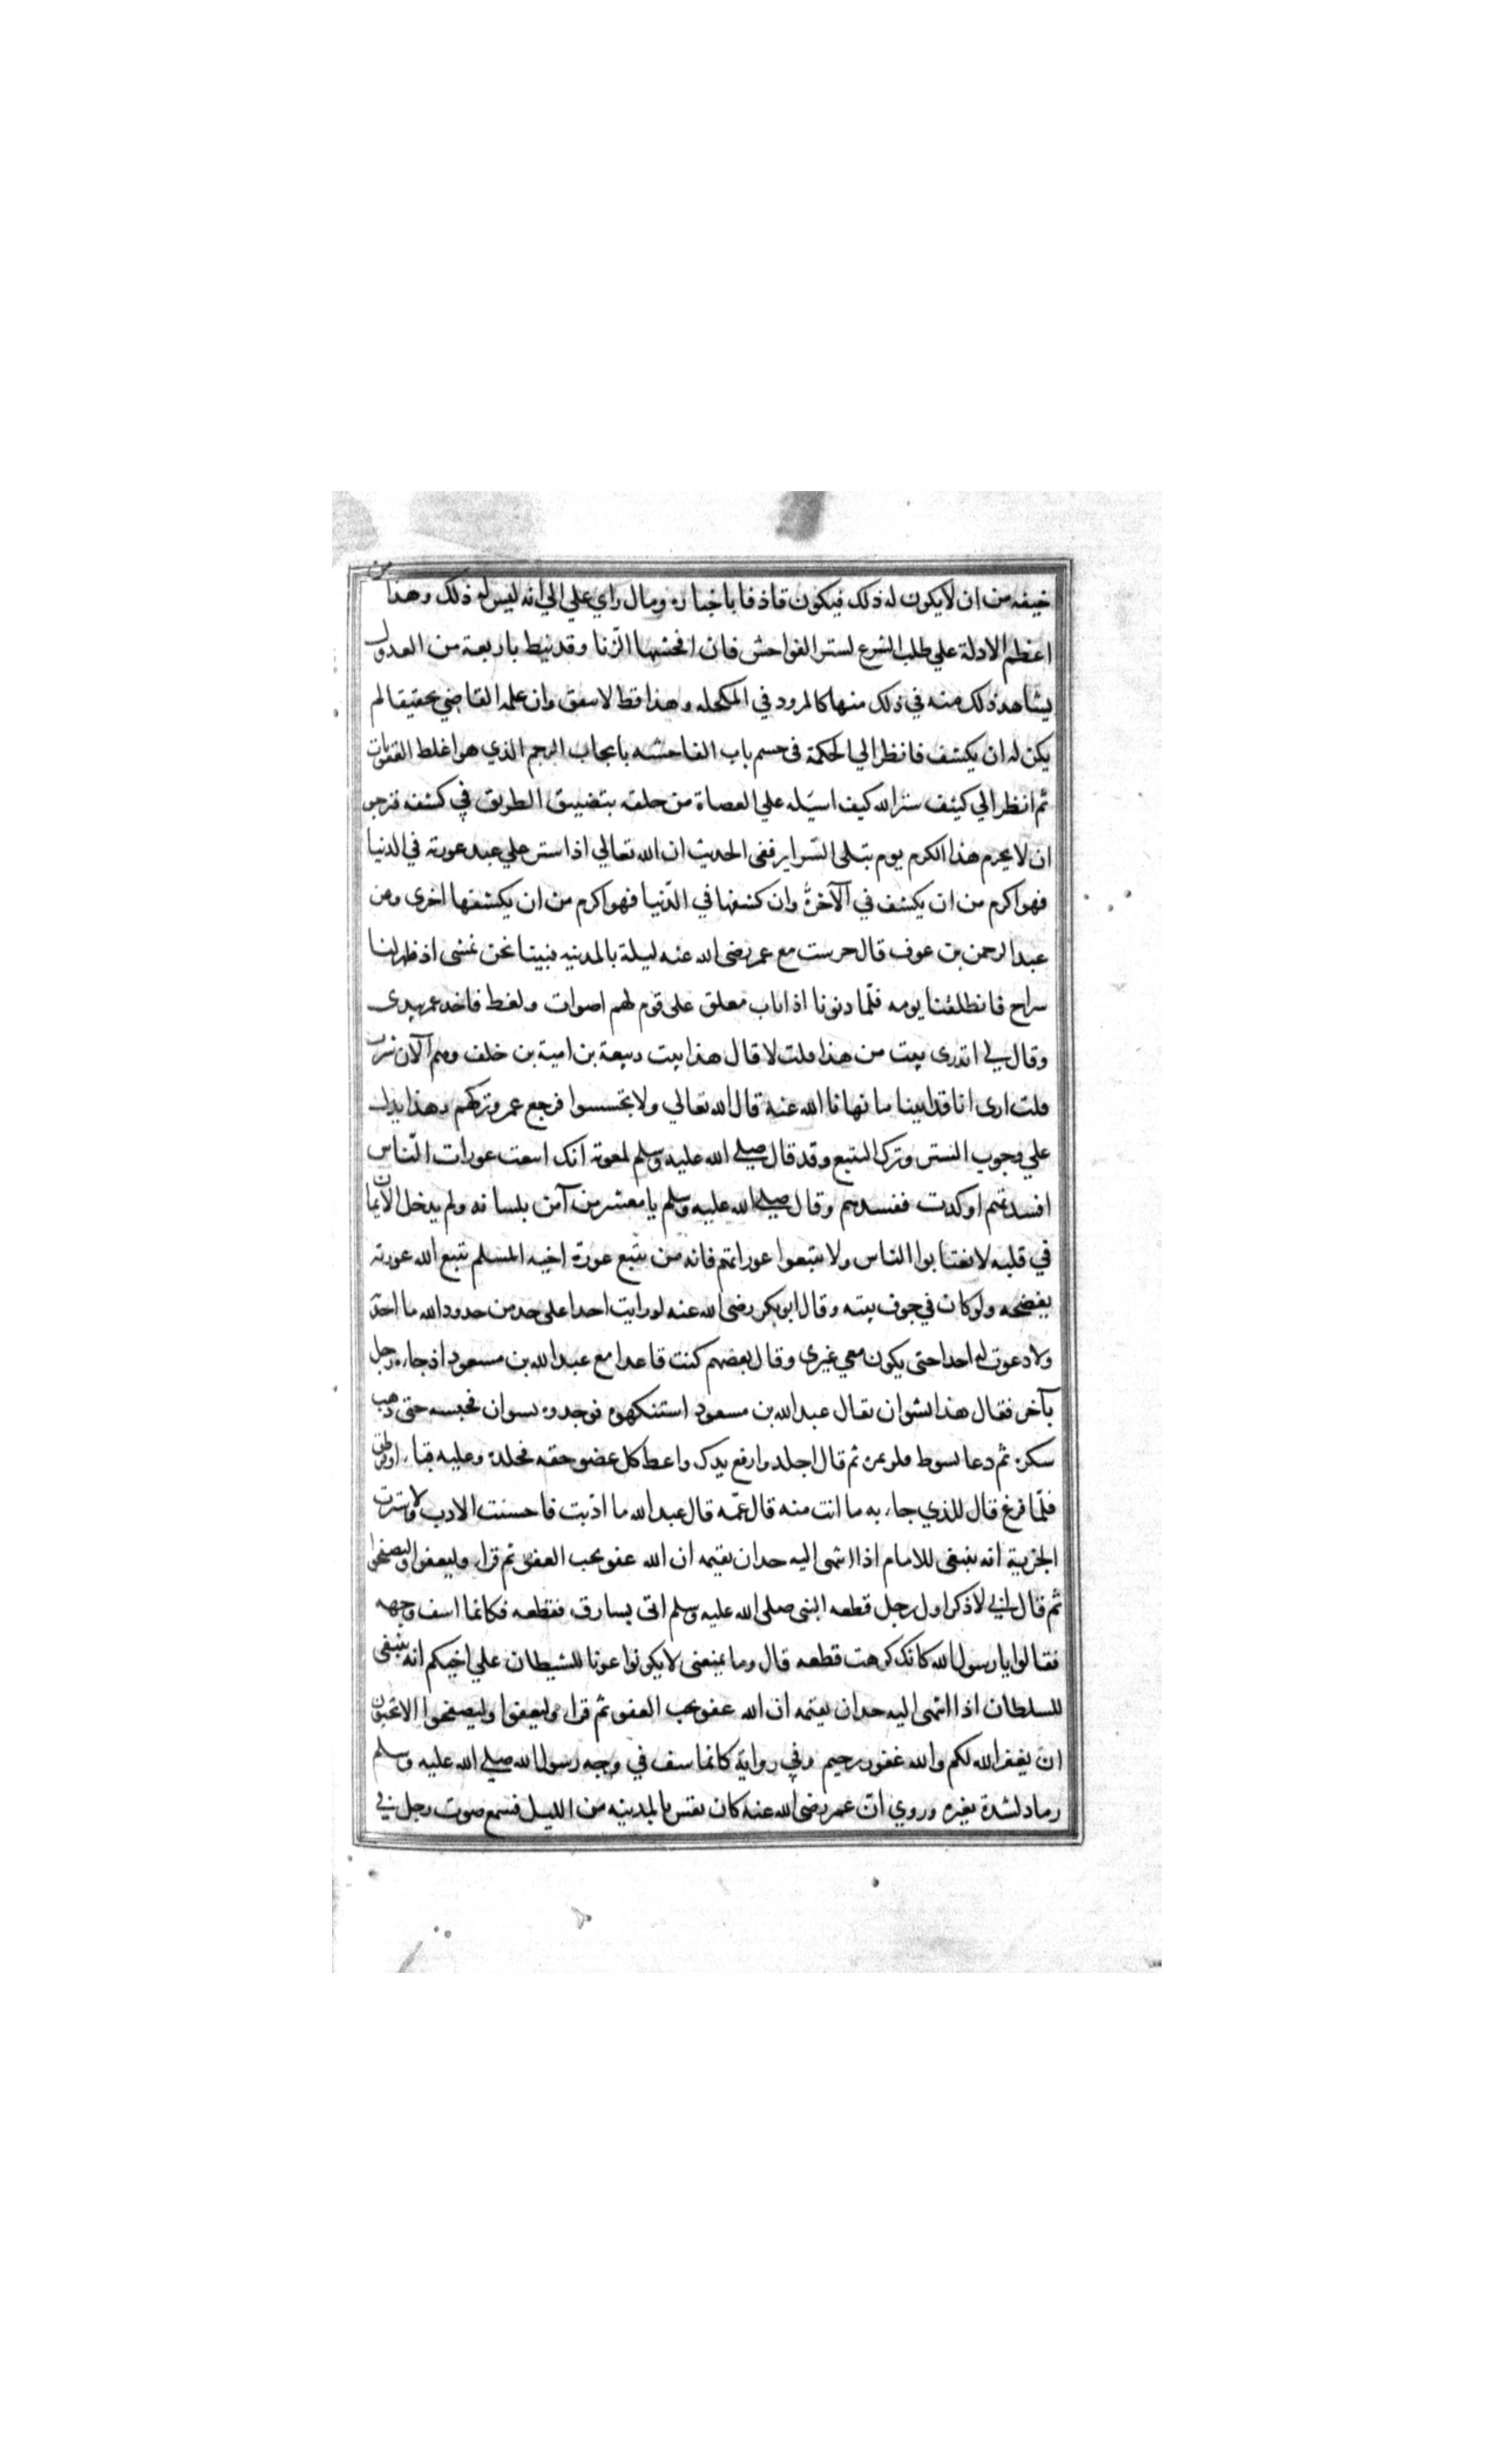 خيفه من ان لا يكون له ذلك فيكون قاذفا باخباره ومال راي علي الي انه ليس له ذلك وهذا من
اعظم الادلة علي طلب الشرع لستر الفواحش فان افحشها الزنا وقد نيط باربعة من العدول
يشاهد ذلك منه في ذلك منها كالمرود في المكحله وهذا قط لا سفق وان علمه القاضي تحقيقا لم
يكن له ان يكشف فانظر الي الحكمة في حسم باب الفاحشه بايجاب الرجم الذي هو اغلط العقوبات
ثم انظر الي كيثف ستر الله كيف اسبله علي العصاة من خلقه بتضييق الطريق في كشفه فنرجو
ان لا يحرم هذا الكرم يوم تبلى السراير ففى الحديث ان الله تعالي اذا ستر علي عبد عورته في الدنيا
فهو اكرم من ان يكشف في الآخرة وان كشفها في الدنيا فهو اكرم من ان يكشفها اخرى وعن
عبد الرحمن بن عوف قال حرست مع عمر رضى الله عنه ليلة بالمدينه فبينا نحن نمشى اذ ظهر لنا
سراج فانطلقنا يومه فلما دنونا اذا باب مغلق على قوم لهم اصوات ولغط فاخد عمر بيدى
وقال لي اتدرى بيت من هذا قلت لا قال هذا بيت ربيعة بن امية بن خلف وهم الآن شرب
قلت ارى انا قد اتينا ما نهانا الله عنه قال الله تعالي ولا تجسسوا فرجع عمر وتركهم وهذا يدل
علي وجوب التستر وترك التتبع وقد قال صلى الله عليه وسلم لمعوية انك اتبعت عورات الناس
افسدتهم او كدت تفسدهم وقال صلى الله عليه وسلم يا معشر من آمن بلسانه ولم يدخل الايمان
في قلبه لا تغتابوا الناس ولا تتبعوا عوراتهم فانه من يتبع عورة اخيه المسلم تتبع الله عورته
يفضحه ولو كان في جوف بيته وقال ابو بكر رضى الله عنه لو رايت احدا على حد من حدود الله ما اخذته
ولا دعوت له احدا حتى يكون معي غيرى وقال بعضهم كنت قاعدا مع عبد الله بن مسعود اذ جاءه رجل
بآخر فقال هذا نشوان فقال عبد الله بن مسعود استنكهوه فوجدوه نسوان فحبسه حتى ذهب
سكره ثم دعا بسوط ثم قال اجلد وارفع يدك واعط كل عضو حقه فجلده وعليه قباء
فلما فرغ قال للذي جاء به ما انت منه قال عمه قال عبد الله ما ادبت فاحسنت الادب ولا سترت
الخزية انه ينبغى للامام اذا انتهى اليه حد ان يقيمه ان الله عفو يحب العفو ثم قرا وليعفوا وليصفحوا
ثم قال اني لاذكر اول رجل قطعه النبى صلى الله عليه وسلم اتى بسارق فقطعه فكانما اسف وجهه
فقالوا يا رسول الله كانك كرهت قطعه قال وما يمنعنى لا يكونوا عونا للشيطان علي اخيكم انه ينبغى
للسلطان اذا انتهى اليه حد ان يقيمه ان الله عفو يحب العفو ثم قرا وليعفوا وليصفحوا الا تحبون
ان يغفر الله لكم والله غفور رحيم وفي رواية كانما سف في وجه رسول الله صلى الله عليه وسلم
رماد لشدة تغيره وروي ان عمر رضى الله عنه كان يعس بالمدينه من الليل فسمع صوت رجل في